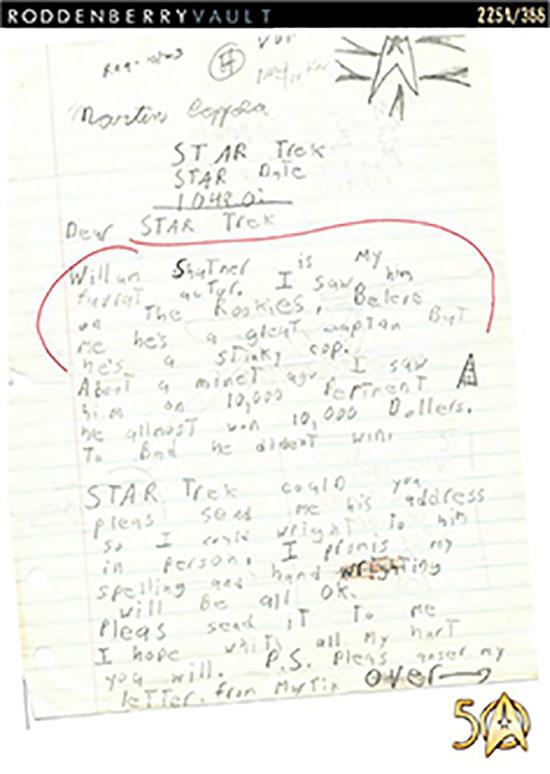 RODDENBERRYVAULT 2251/366
Martin Coppola
STAR Trek
STAR Date
Dear STAR Trek
William Shatner is My
favrat actor. I saw him
on The Rookies, Beleve
me he's a great captan BuT
he's a stinky cop.
About a minet ago I saw
him on 10,000
he allmost won 10,000 Dollers.
To Bad he dident win.
STAR Trek could you
pleas send me his address
so I could wright To him
in person. I promis my
spelling and hand wrighting
will Be all OK.
Pleas send iT To me
I hope whith all My hart
you will. P.S. Pleas anser my
leTTer. from MarTin over
50